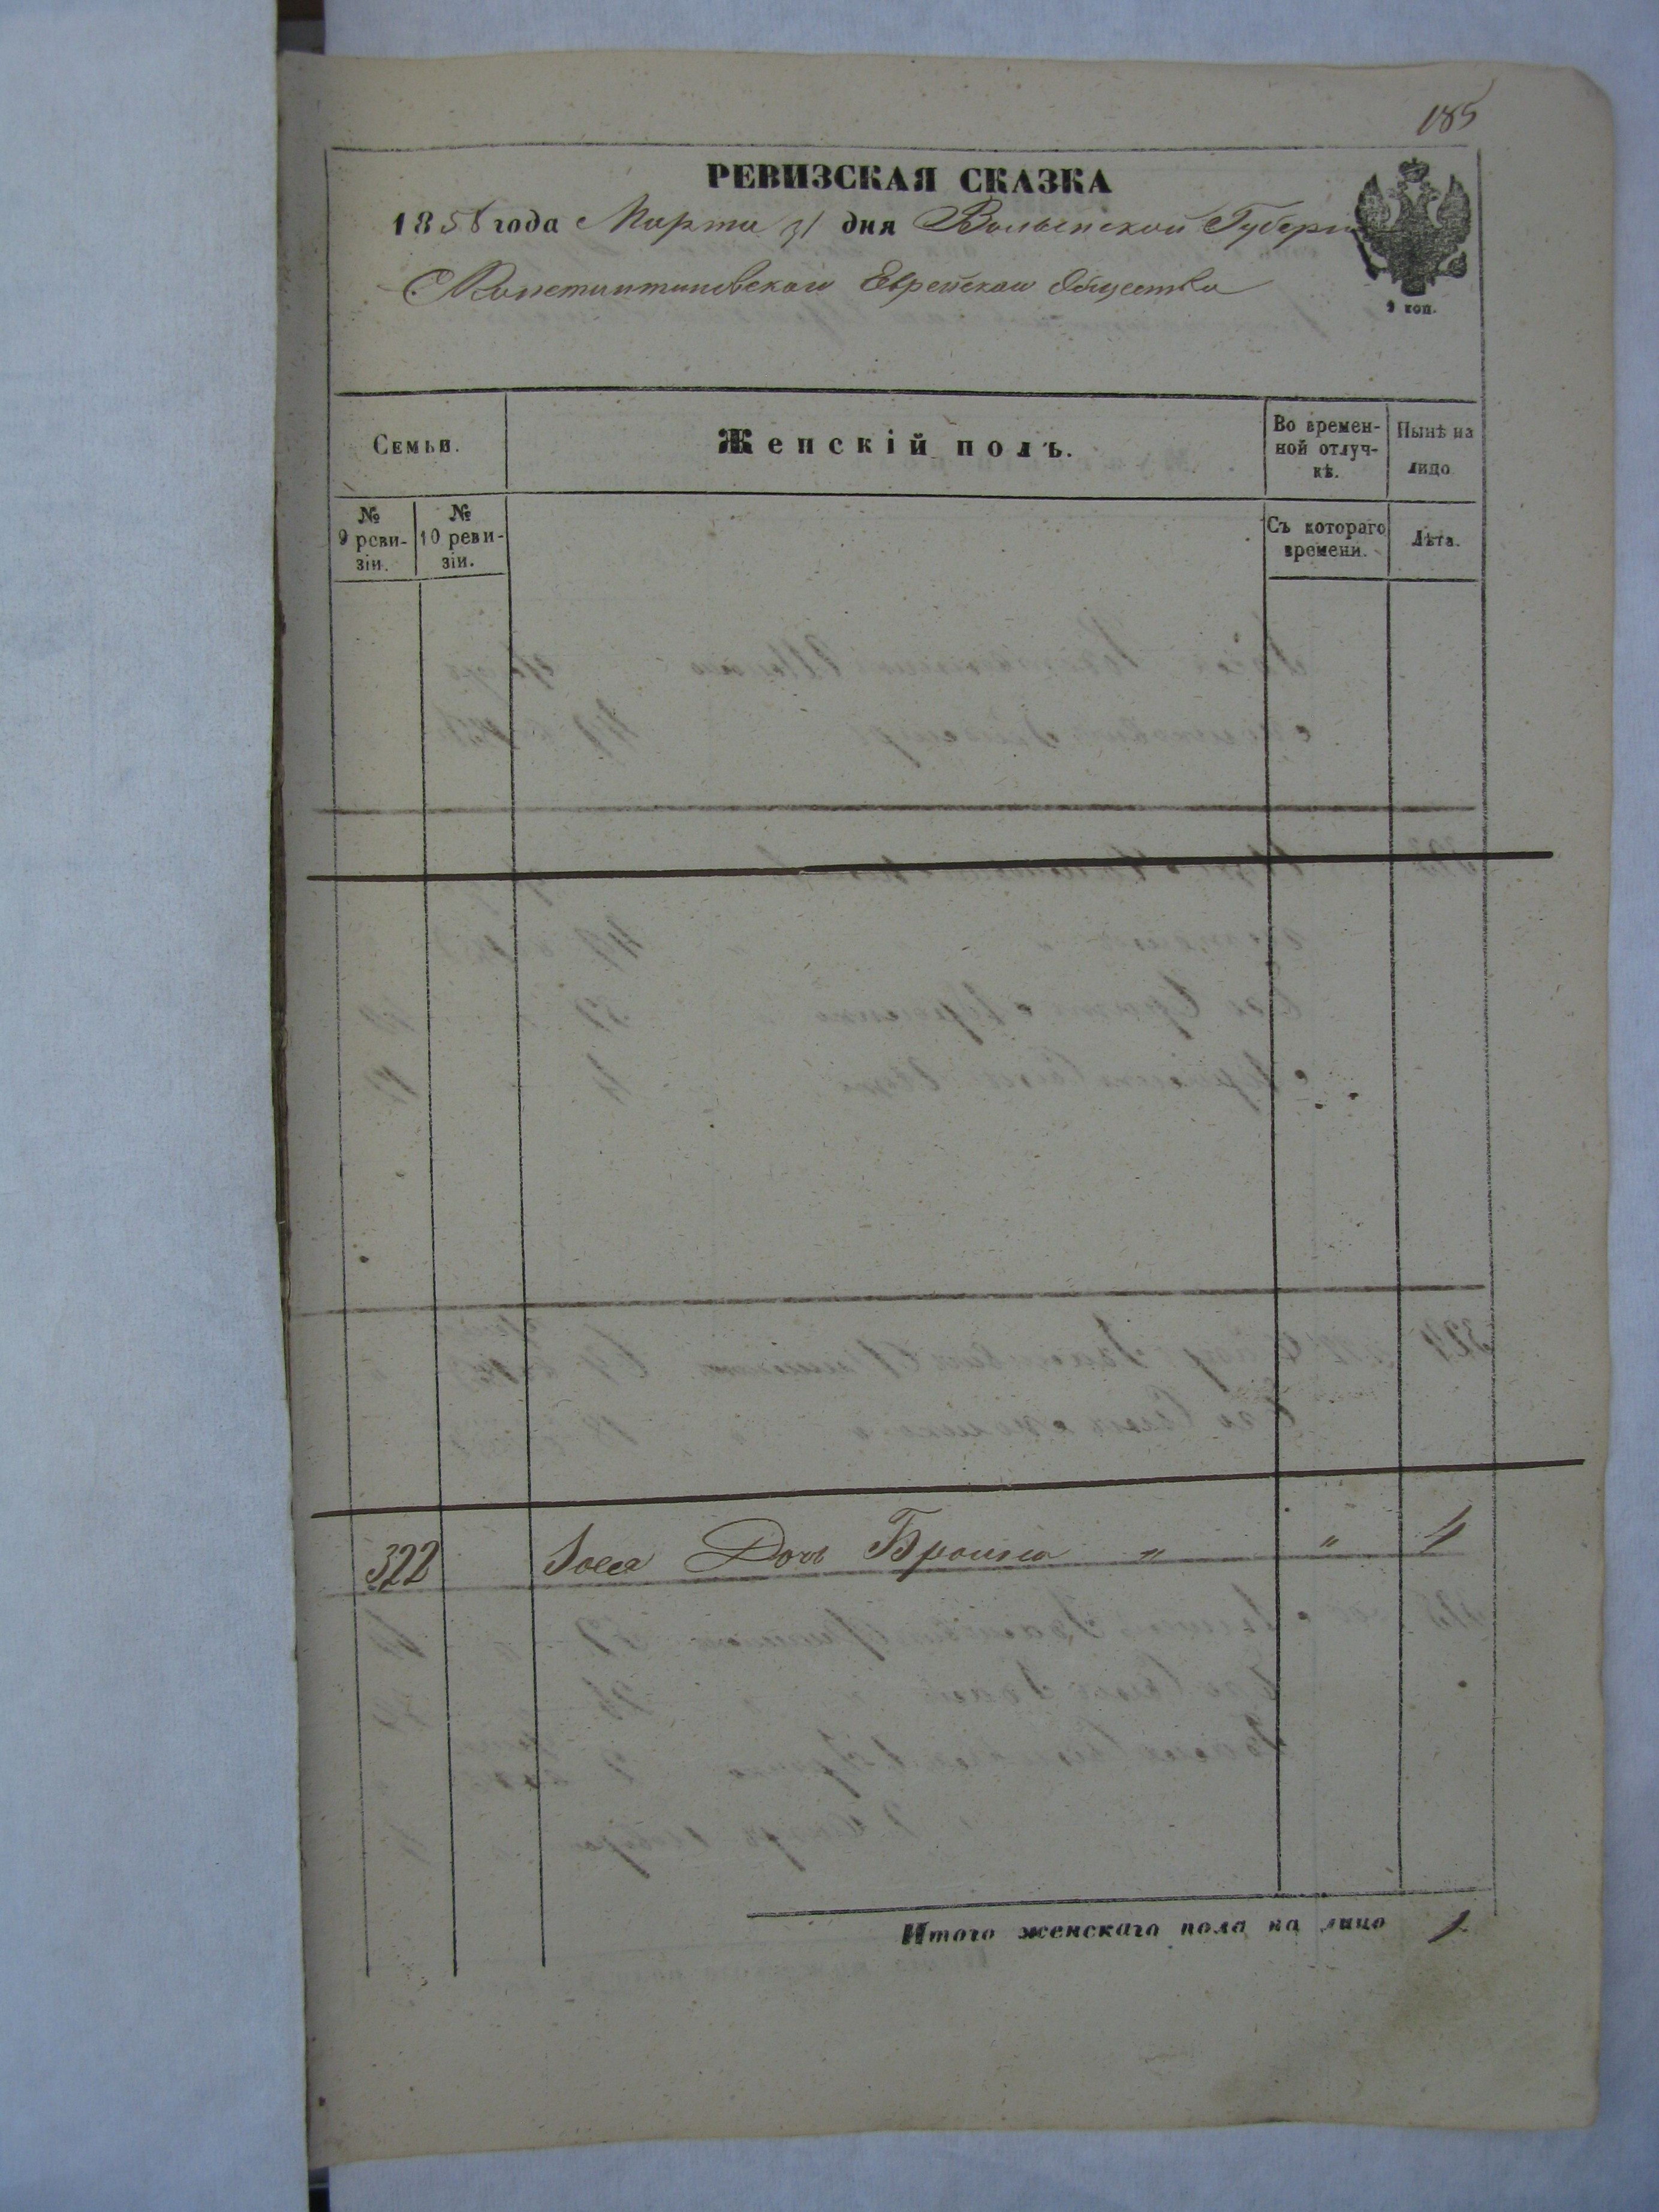 185
РЕВИЗСКАЯ СКАЗКА
1858 года Марта 31 дня Волынской Губерн
Константиновскаго Еврейскаго Общества
9 коп.
Семьи.
Женскій полъ.
Во времен-
ной отлуч-
кѣ.
Нынѣ на
лицо
№
9 реви-
зіи.
№
10 реви-
зіи.
Съ котораго
времени.
Лѣта.
322 Дочь " " 4
Итого женскаго пола на лицо 1